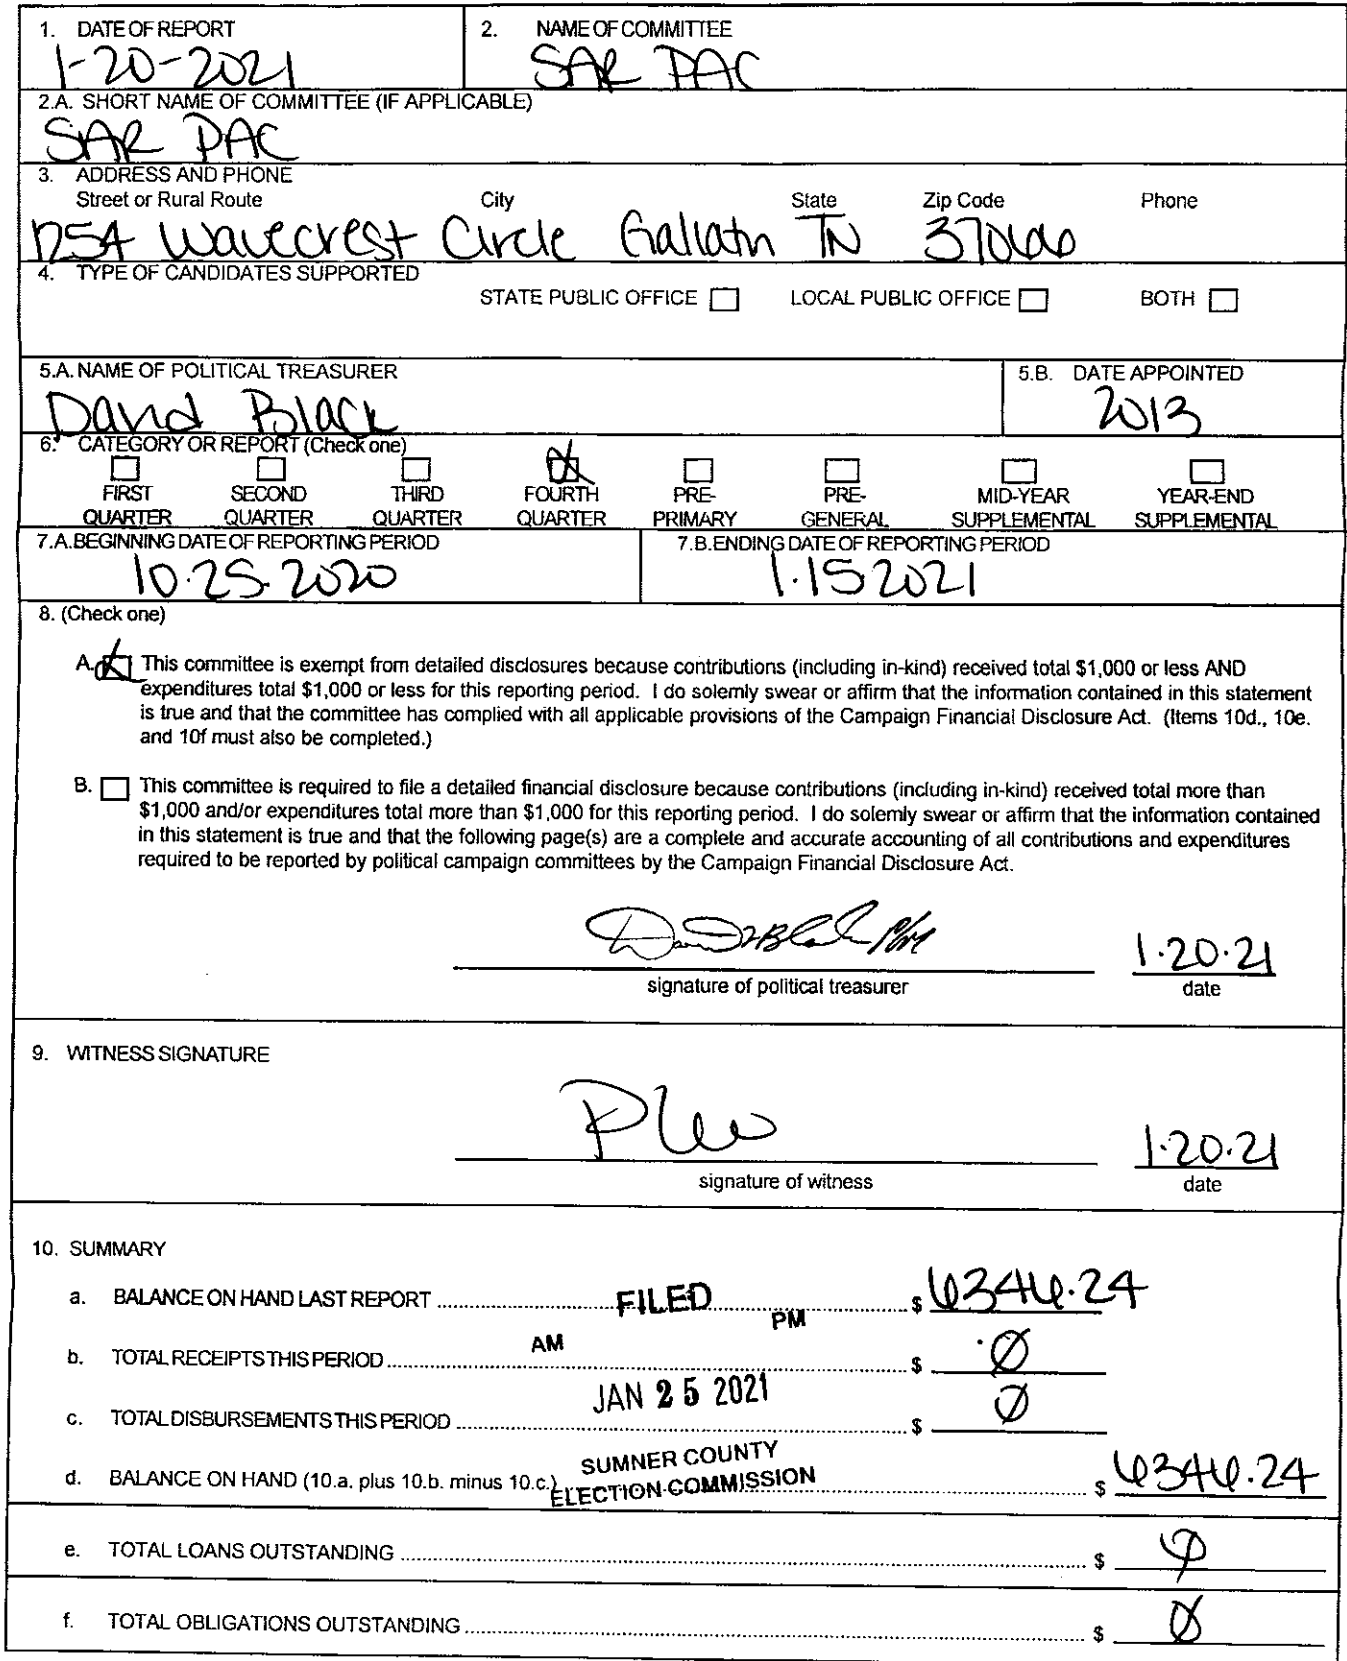 1. DATE OF REPORT
1-20-2021
2. NAME OF COMMITTEE
SAR PAC
2.A. SHORT NAME OF COMMITTEE (IF APPLICABLE)
SAR PAC
3. ADDRESS AND PHONE
Street or Rural Route City State Zip Code Phone
1254 Wavecrest Circle Gallatn TN 37066
4. TYPE OF CANDIDATES SUPPORTED
STATE PUBLIC OFFICE LOCAL PUBLIC OFFICE BOTH
5.A. NAME OF POLITICAL TREASURER
David Black
5.B. DATE APPOINTED
2013
6. CATEGORY OR REPORT (Check one)
FIRST QUARTER
SECOND QUARTER
THIRD QUARTER
X
FOURTH QUARTER
PRE-PRIMARY
PRE-GENERAL
MID-YEAR SUPPLEMENTAL
YEAR-END SUPPLEMENTAL
7.A. BEGINNING DATE OF REPORTING PERIOD
10.25.2020
7.B. ENDING DATE OF REPORTING PERIOD
1.15 2021
8. (Check one)
A. X This committee is exempt from detailed disclosures because contributions (including in-kind) received total $1,000 or less AND
expenditures total $1,000 or less for this reporting period. I do solemly swear or affirm that the information contained in this statement
is true and that the committee has complied with all applicable provisions of the Campaign Financial Disclosure Act. (Items 10d., 10e.
and 10f must also be completed.)
B. This committee is required to file a detailed financial disclosure because contributions (including in-kind) received total more than
$1,000 and/or expenditures total more than $1,000 for this reporting period. I do solemly swear or affirm that the information contained
in this statement is true and that the following page(s) are a complete and accurate accounting of all contributions and expenditures
required to be reported by political campaign committees by the Campaign Financial Disclosure Act.
1.20.21
signature of political treasurer date
9. WITNESS SIGNATURE
1.20.21
signature of witness date
10. SUMMARY
a. BALANCE ON HAND LAST REPORT $ 6346.24
FILED
AM PM
b. TOTAL RECEIPTS THIS PERIOD $ 0
JAN 25 2021
c. TOTAL DISBURSEMENTS THIS PERIOD $ 0
SUMNER COUNTY
ELECTION COMMISSION
d. BALANCE ON HAND (10.a. plus 10.b. minus 10.c.) $ 6346.24
e. TOTAL LOANS OUTSTANDING $ 0
f. TOTAL OBLIGATIONS OUTSTANDING $ 0